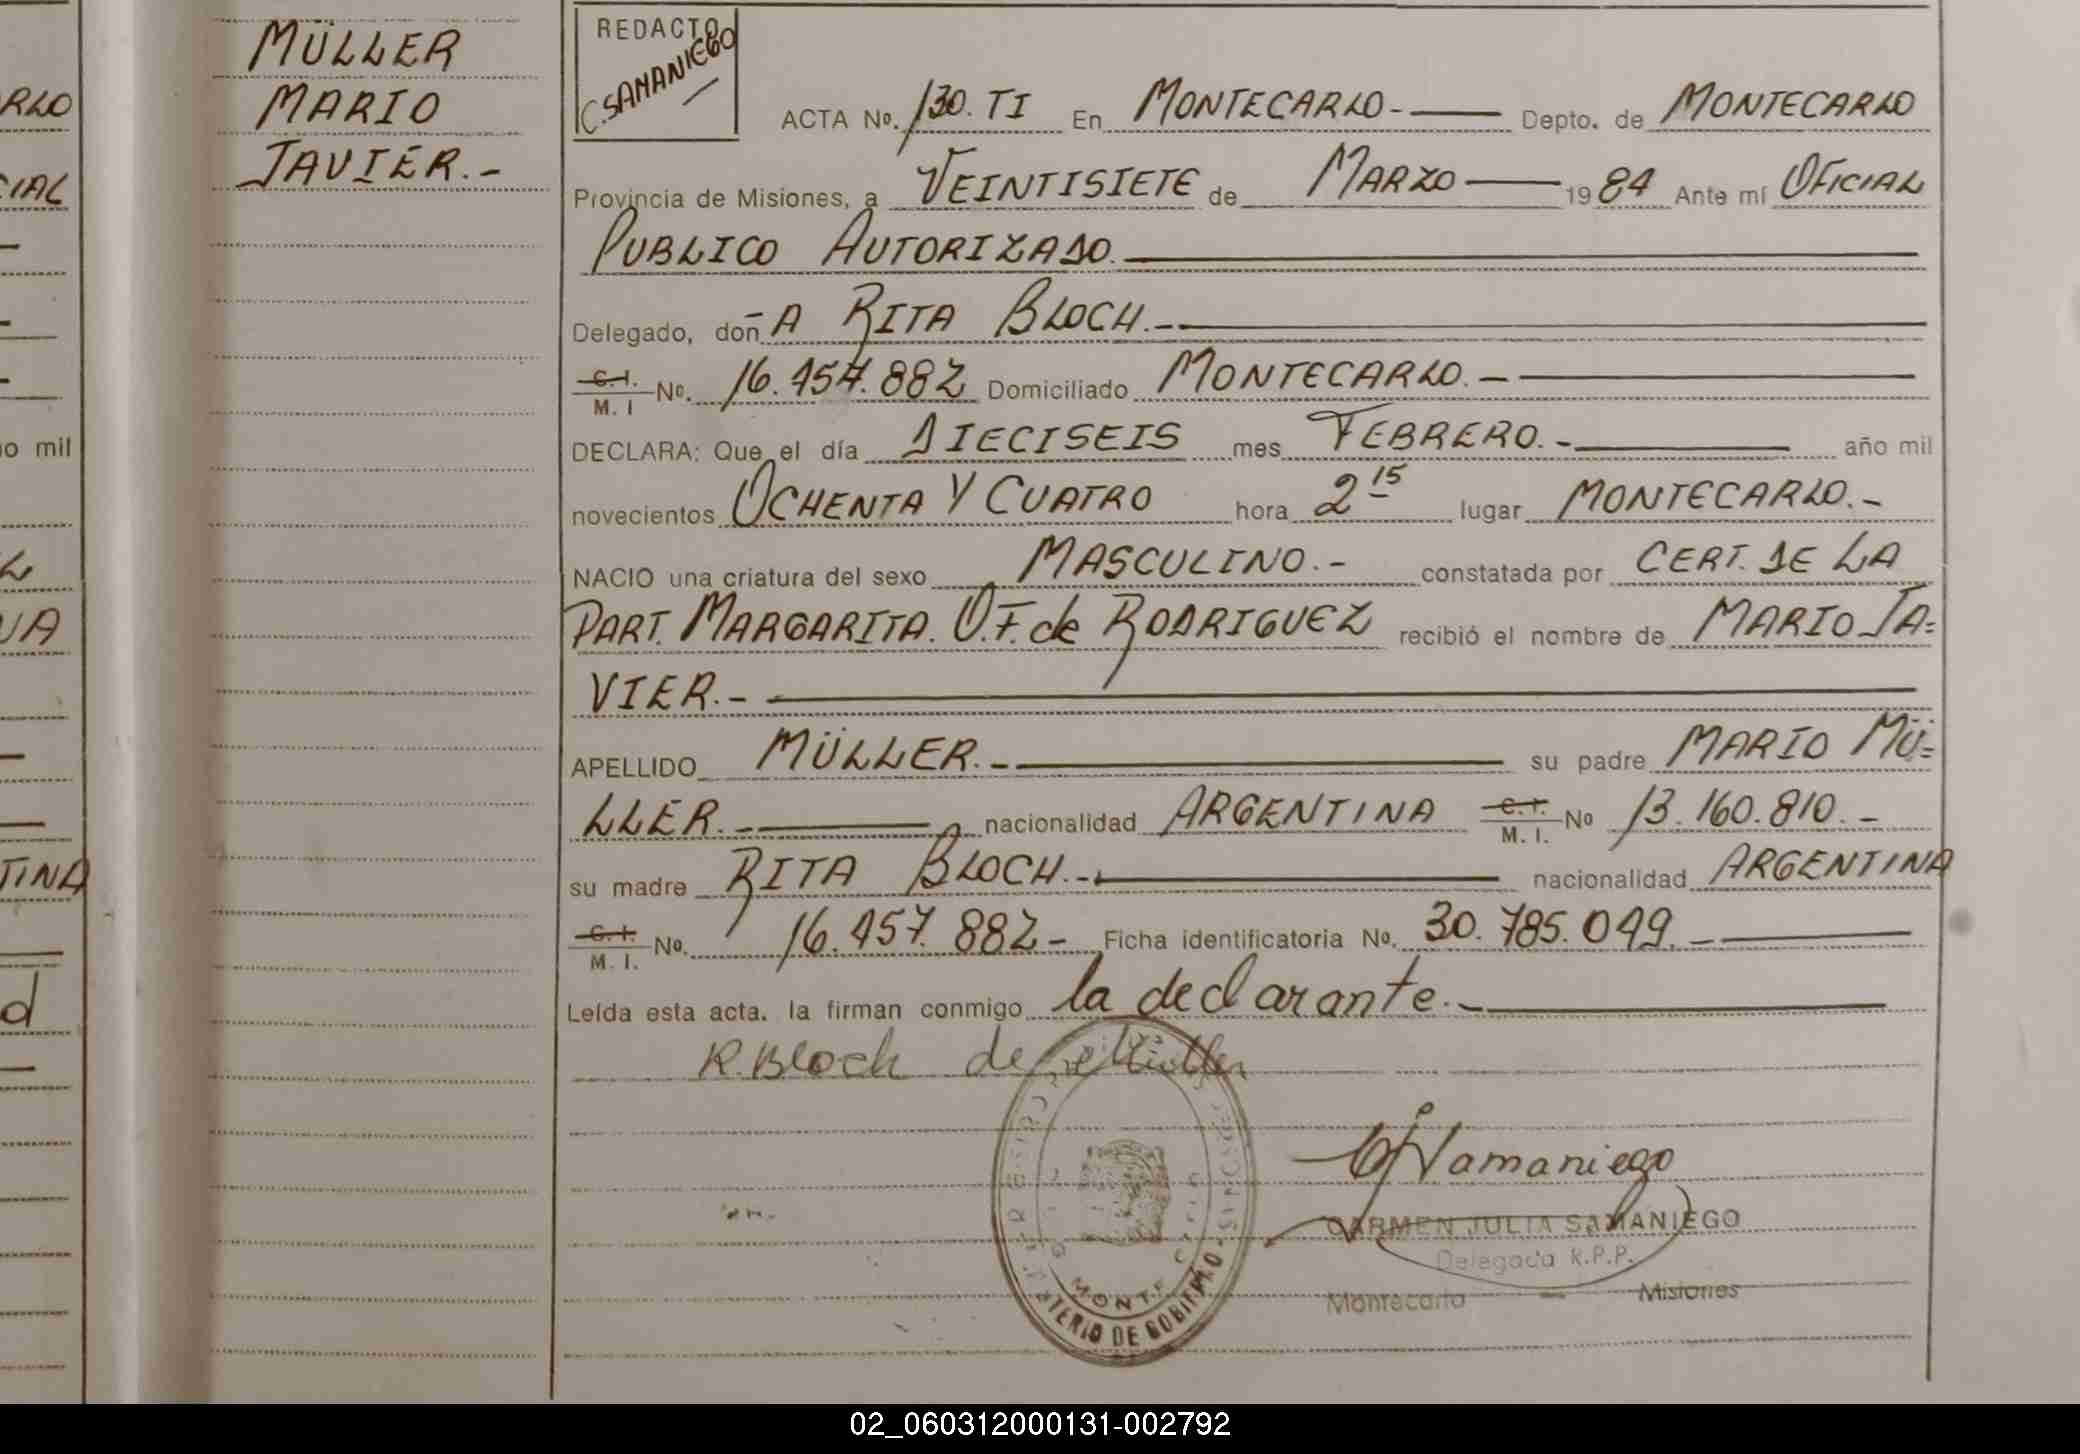 MÜLLER
MARIO
JAVIER.-
REDACTO
C. SAMANIEGO
ACTA No. 130. TI En MONTECARLO.- Depto. de MONTECARLO
Provincia de Misiones, a VEINTISIETE de MARZO 1984 Ante mí OFICIAL
PUBLICO AUTORIZADO.
Delegado, don A RITA BLOCH.-
C.I. M.I No. 16.457.882 Domiciliado MONTECARLO.-
DECLARA: Que el día DIECISEIS mes FEBRERO.- año mil
novecientos OCHENTA Y CUATRO hora 2 15 lugar MONTECARLO.-
NACIO una criatura del sexo MASCULINO.- constatada por CERT. DE LA
PART. MARGARITA. O.F. de RODRIGUEZ recibió el nombre de MARIO JA=
VIER.-
APELLIDO MÜLLER.- su padre MARIO MÜ=
LLER.- nacionalidad ARGENTINA C.I. M.I. No 13.160.810.-
su madre RITA BLOCH.- nacionalidad ARGENTINA
C.I. M.I. No. 16.457.882- Ficha identificatoria No. 30.785.049.-
Leída esta acta. la firman conmigo la declarante.-
R. Bloch de Müller
Samaniego
CARMEN JULIA SAMANIEGO
Delegada R.P.P.
Montecarlo - Misiones
MONTE
TERIO DE GOBIERNO
RLO
CIAL
o mil
VA
TINA
d
02_060312000131-002792